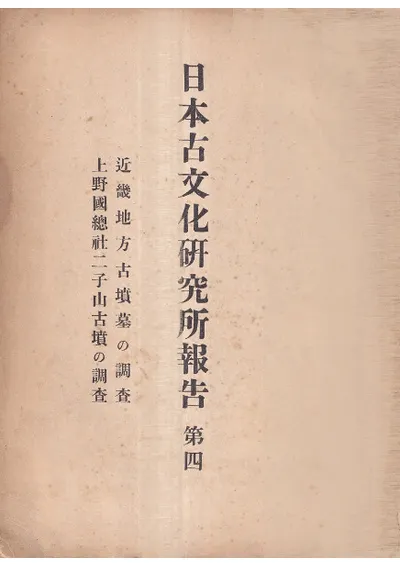 日本古文化硏究所報告 第四
近畿地方古墳墓の調査
上野國總社二子山古墳の調査